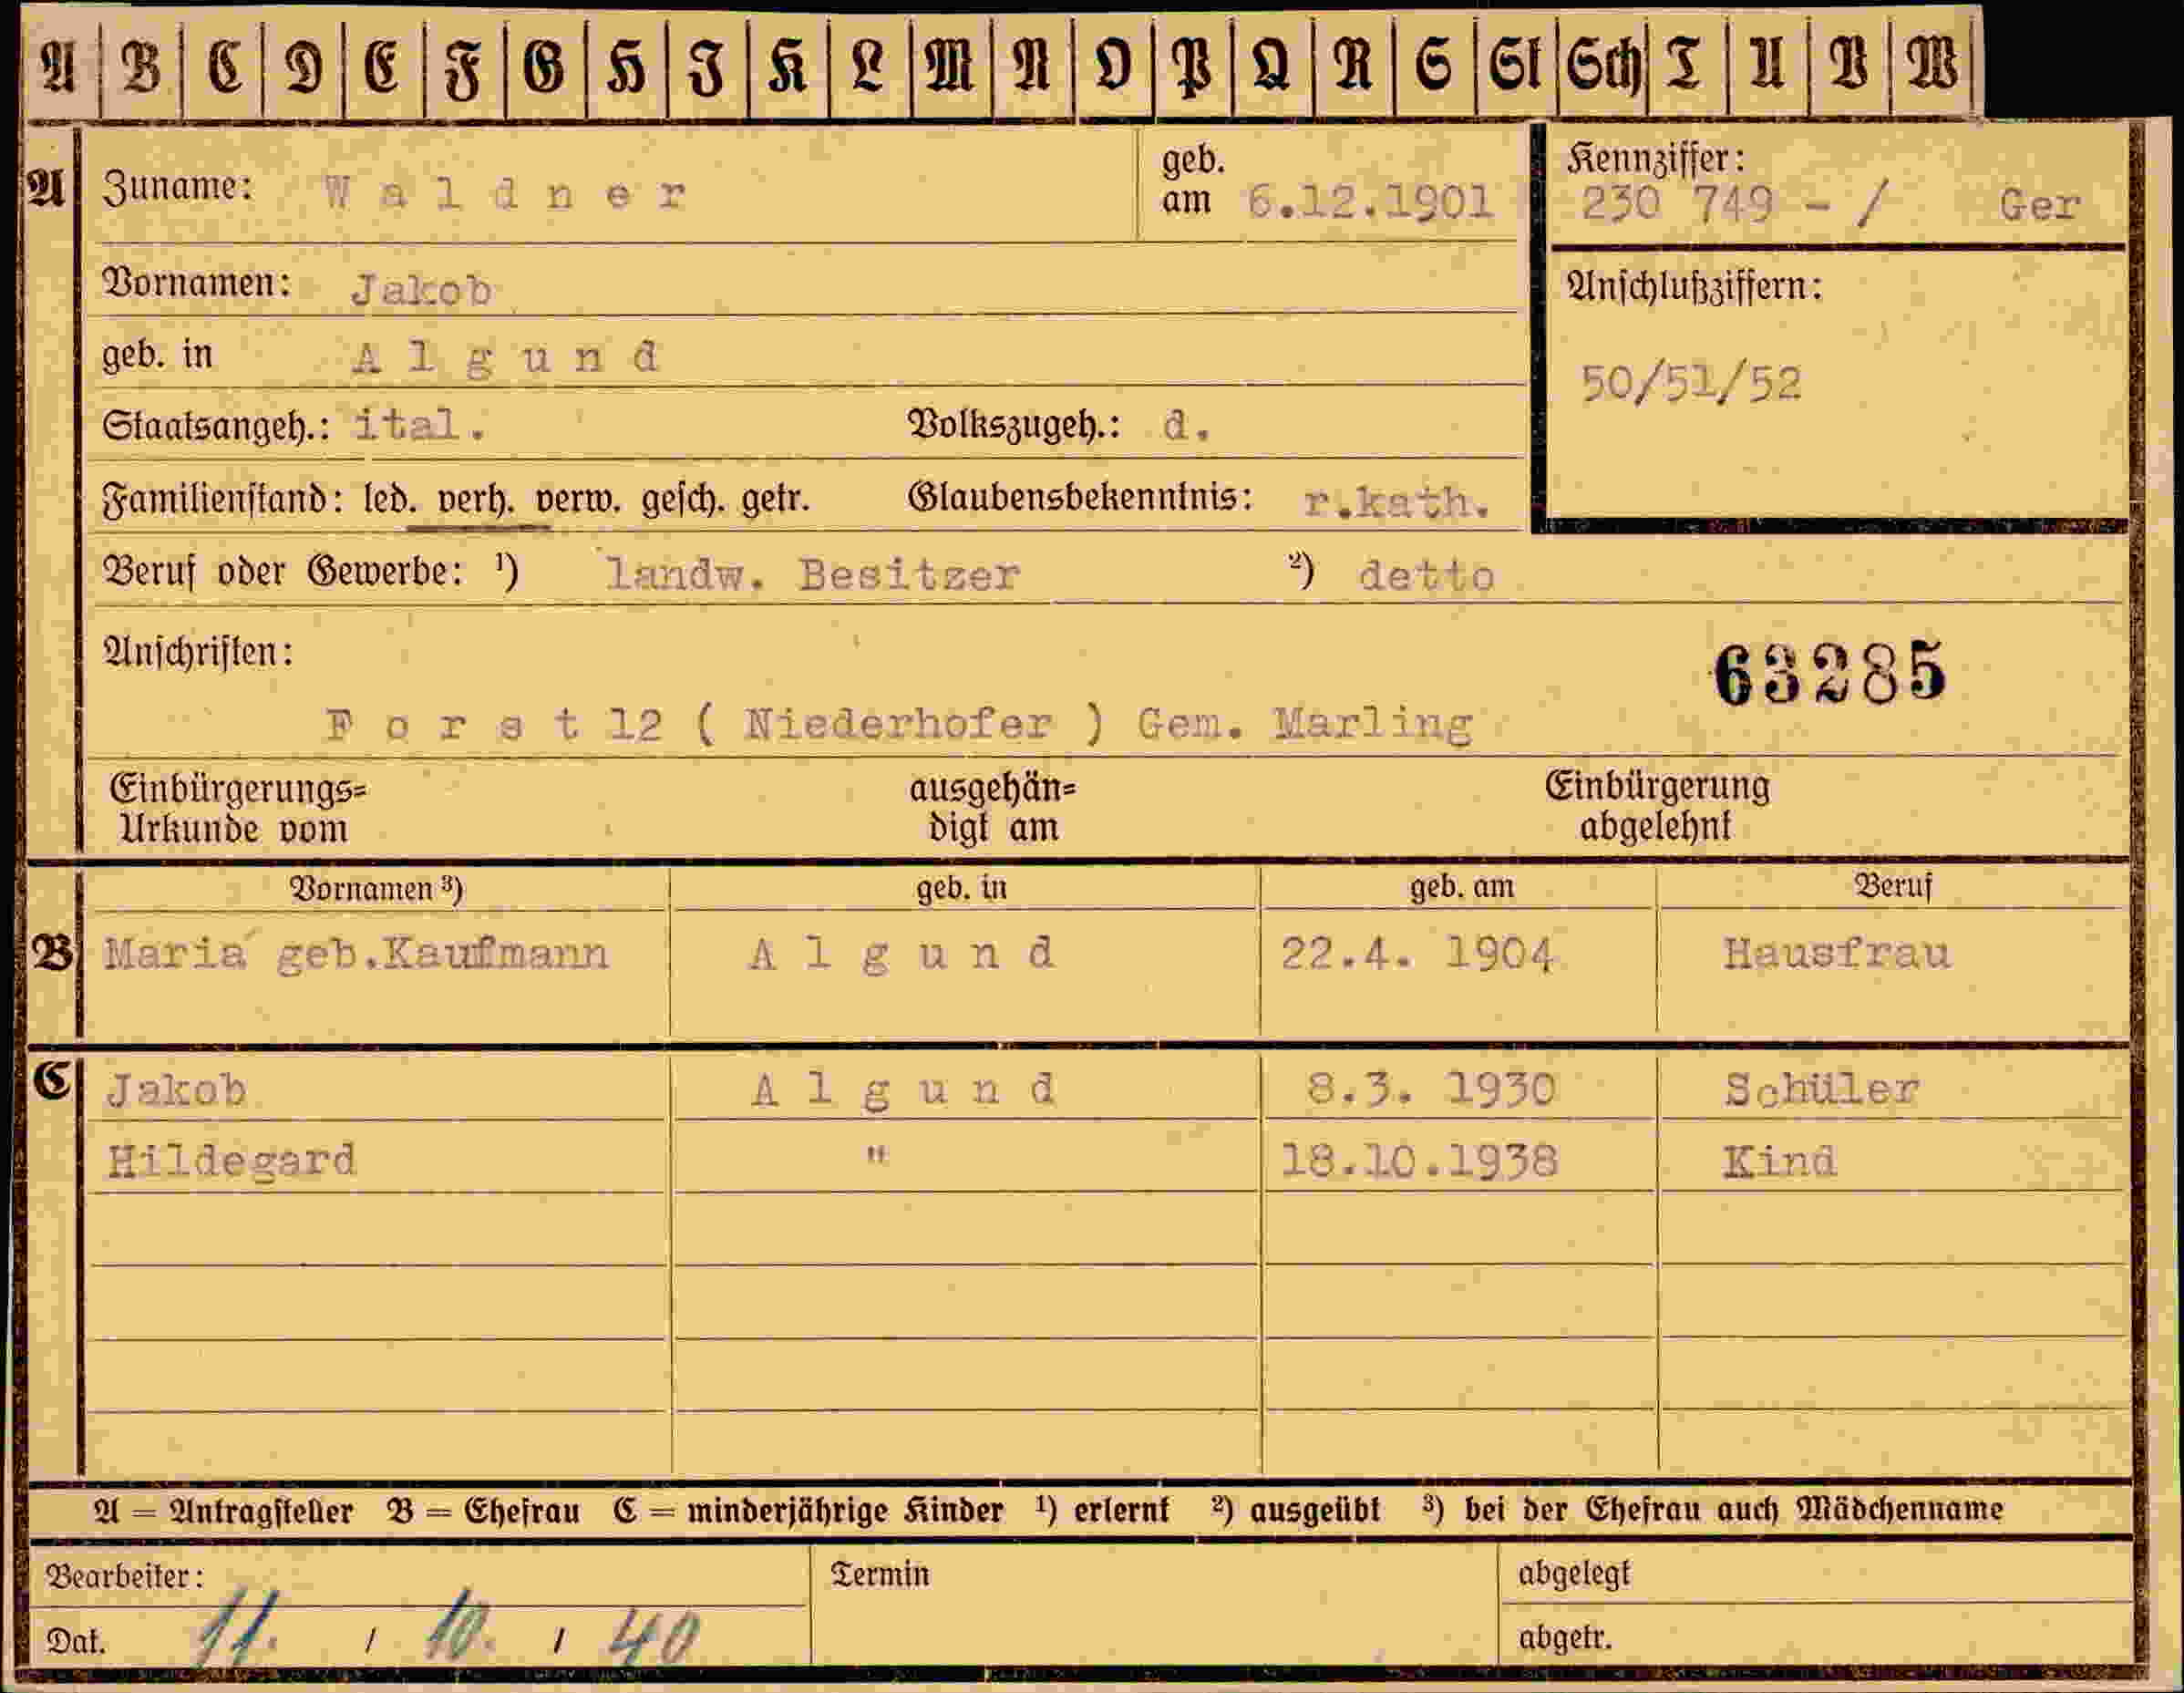 A B C D E F G H I K L M N O P Q R S St Sch T U V W
A Zuname: Waldner geb. am 6.12.1901 Kennziffer: 230 749 - / Ger
Vornamen: Jakob Anschlußziffern:
geb. in Algund 50/51/52
Staatsangeh.: ital. Volkszugeh.: d.
Familienstand: led. verh. verw. gesch. getr. Glaubensbekenntnis: r.kath.
Beruf oder Gewerbe: ¹) landw. Besitzer ²) detto
Anschriften: 63285
Forst 12 ( Niederhofer ) Gem. Marling
Einbürgerungs= ausgehän= Einbürgerung
Urkunde vom digt am abgelehnt
Vornamen ³) geb. in geb. am Beruf
B Maria geb.Kaufmann Algund 22.4. 1904 Hausfrau
C Jakob Algund 8.3. 1930 Schüler
Hildegard " 18.10.1938 Kind
A = Antragsteller B = Ehefrau C = minderjährige Kinder ¹) erlernt ²) ausgeübt ³) bei der Ehefrau auch Mädchenname
Bearbeiter: Termin abgelegt
Dat. 11. / 10. / 40 abgetr.